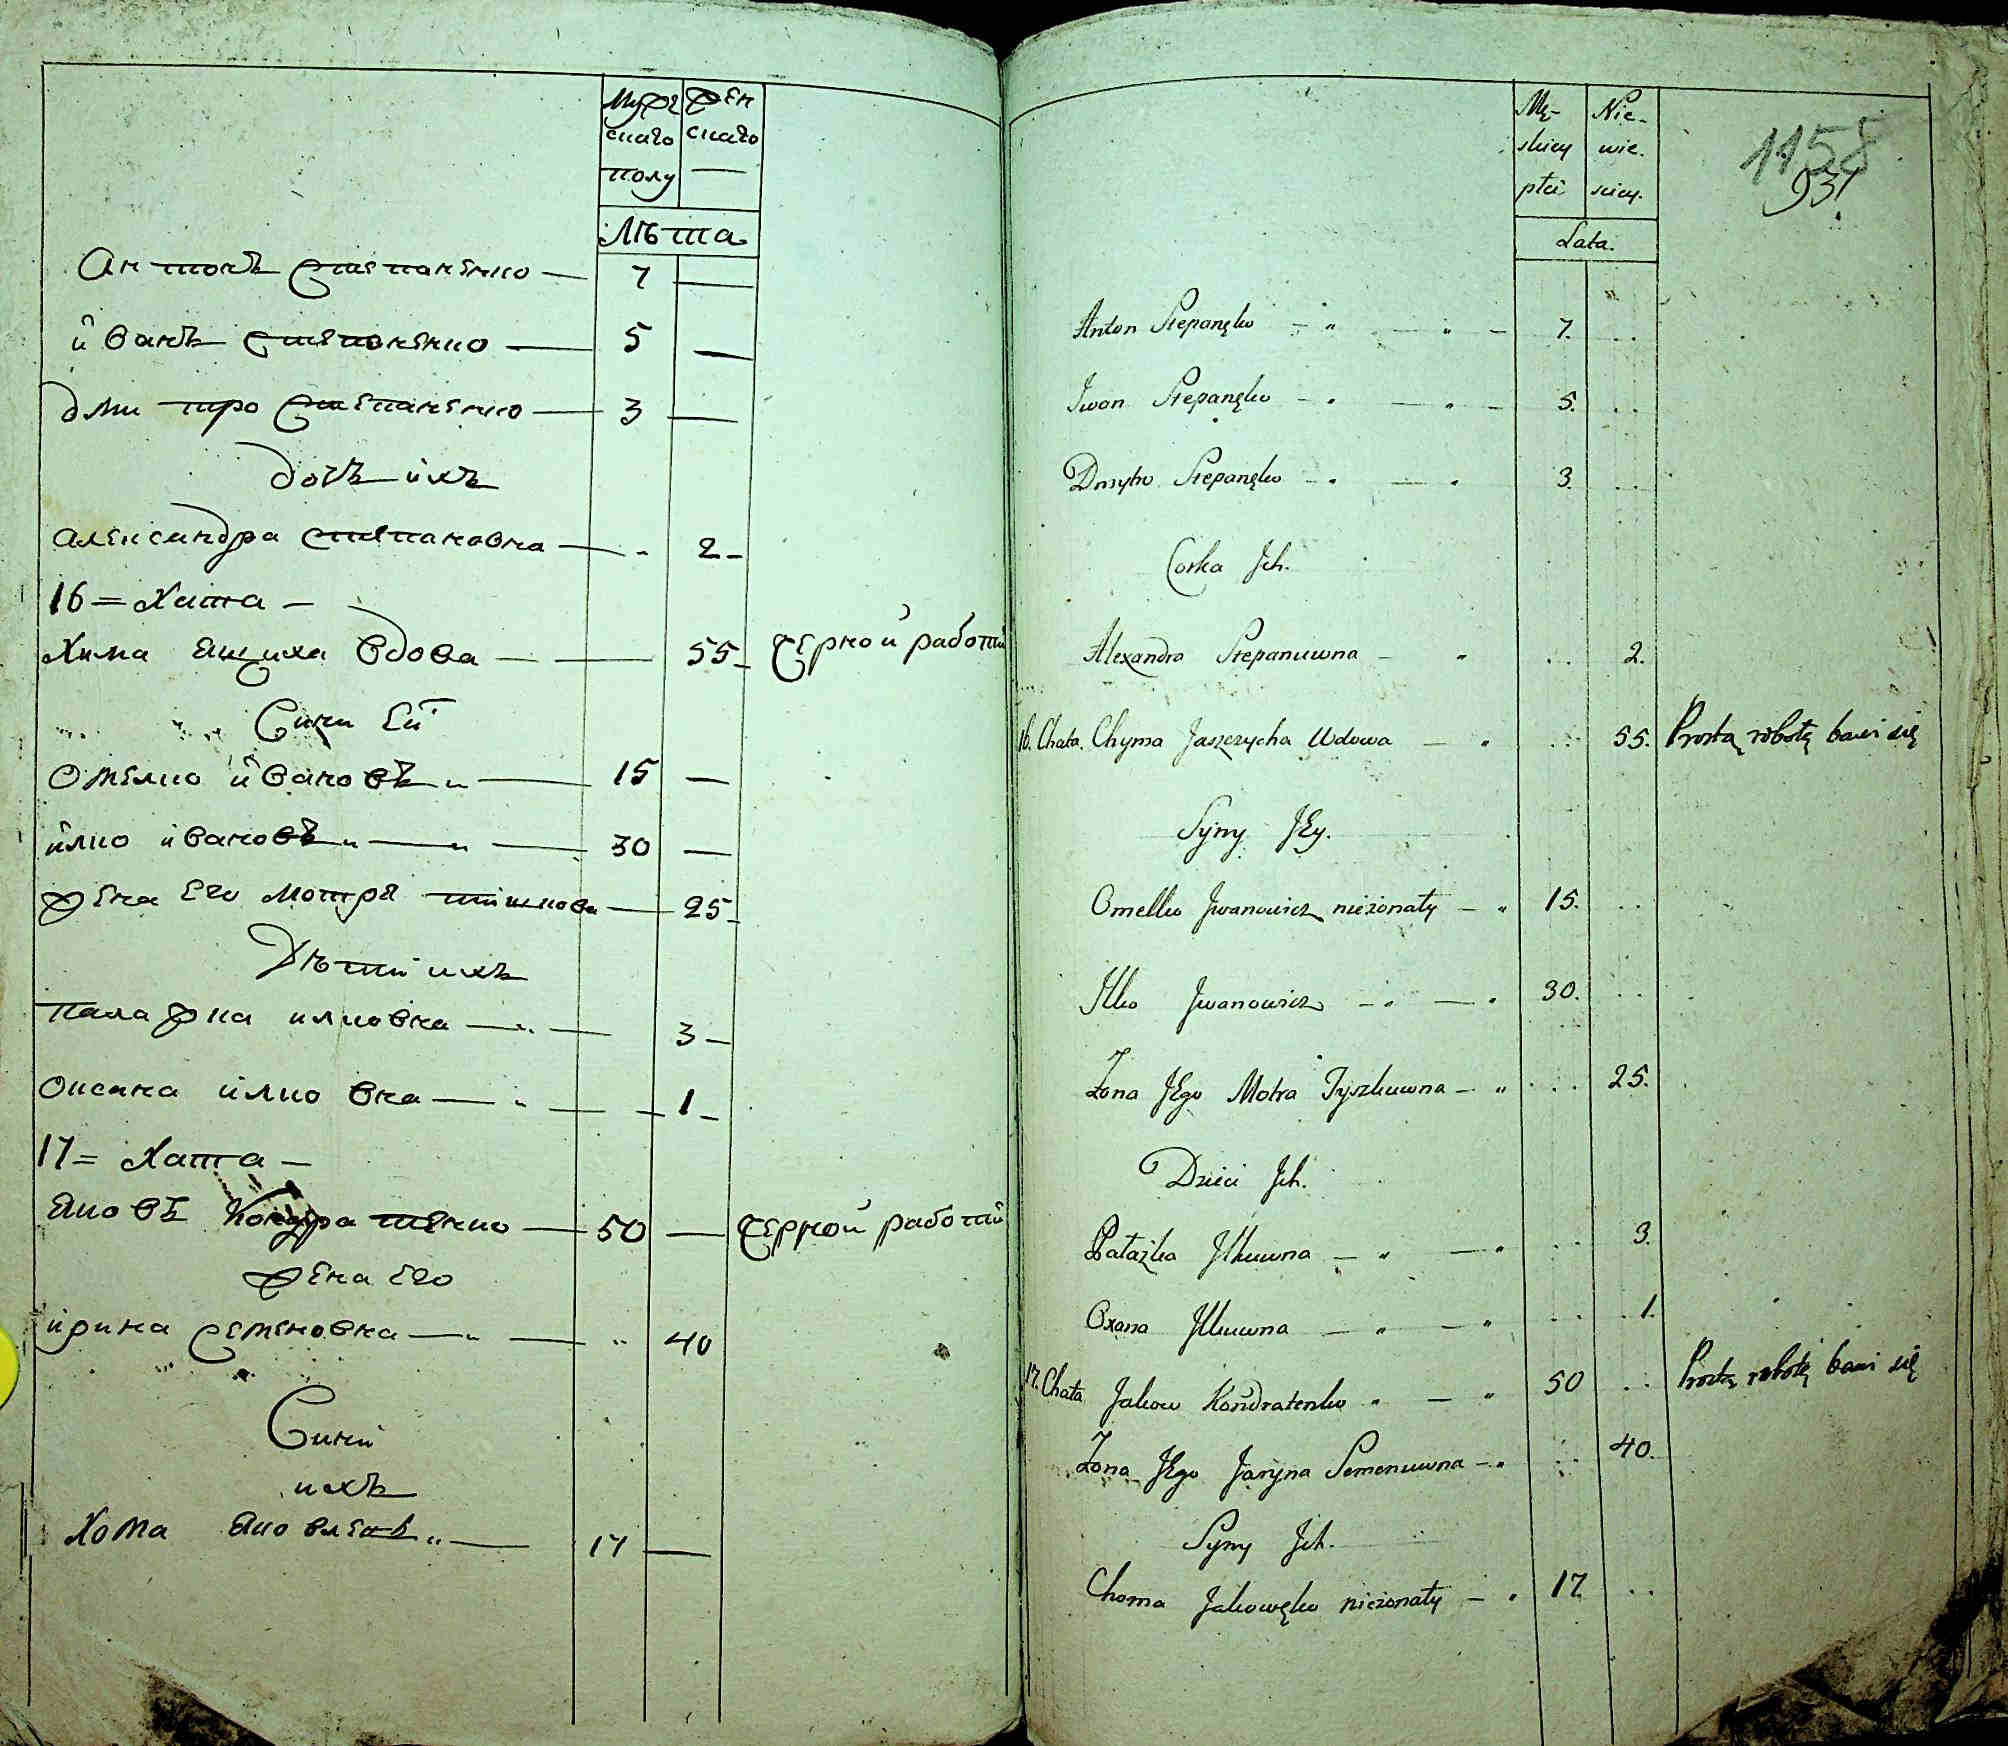 Мужескаго полу
Женскаго —
Лѣта
Антонъ Степаненко — 7 —
Иванъ Степаненко — 5 —
Дмитро Степаненко — 3 —
дочь ихъ
Александра Степановна — 2 —
16 = Хата —
Хима Ящиха вдова — — 55 — Черной работи
Сини Еи
Омелко Ивановъ — 15 —
Илко Ивановъ — — 30 —
Жена Его Мотря Тишкова — 25 —
Дѣти ихъ
Палажка Илковна — — 3 —
Оксана Илковна — — 1 —
17 = Хата —
Яковъ Кондратенко — 50 — Черной работи
Жена Его
Ирина Семеновна — — 40
Сини
ихъ
Хома Яковленъ — 17 —
Męskiey płci
Niewieściey.
Lata.
1158
931
Anton Stepanęko — — 7.
Iwan Stepanęko — — 5.
Dmytro Stepanęko — — 3.
Corka Jch.
Alexandra Stepanuwna — 2.
16. Chata. Chyma Jaszczycha Wdowa — 55. Prostą robotą bawi się
Syny JEy.
Omelko Jwanowicz nieżonaty — 15.
Ilko Jwanowicz — — 30.
Żona JEgo Motra Tyszkuwna — 25.
Dzieci Jch.
Pałażka Jlkuwna — — 3.
Oxana Jlkuwna — — 1.
17. Chata Jakow Kondratenko — 50 Prostą robotą bawi się
Żona JEgo Jaryna Semenuwna — 40.
Syny Jch.
Choma Jakowęko nieżonaty — 17